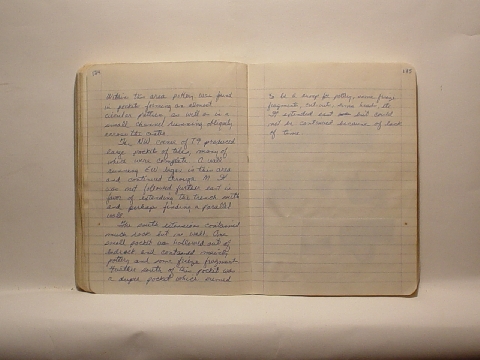 184
Within this area pottery was found
in pockets forming an almost
circular pattern, as well as in a
small channel running obliquely
across the center.
The NW corner of T9 produced
large pockets of tiles, many of
which were complete. A wall
running EW began in this area
and continued through
was not followed further east in
favor of extending the trench south
and perhaps finding a parallel
wall.
The south extension contained
much rock but no wall. One
small pocket was hollowed out of
bedrock and contained mainly
pottery and some frieze fragments.
Further south of this pocket was
a deeper pocket which seemed
185
to be a dump for pottery, some frieze
fragments,
It extended east but could
not be continued because of lack
of time.